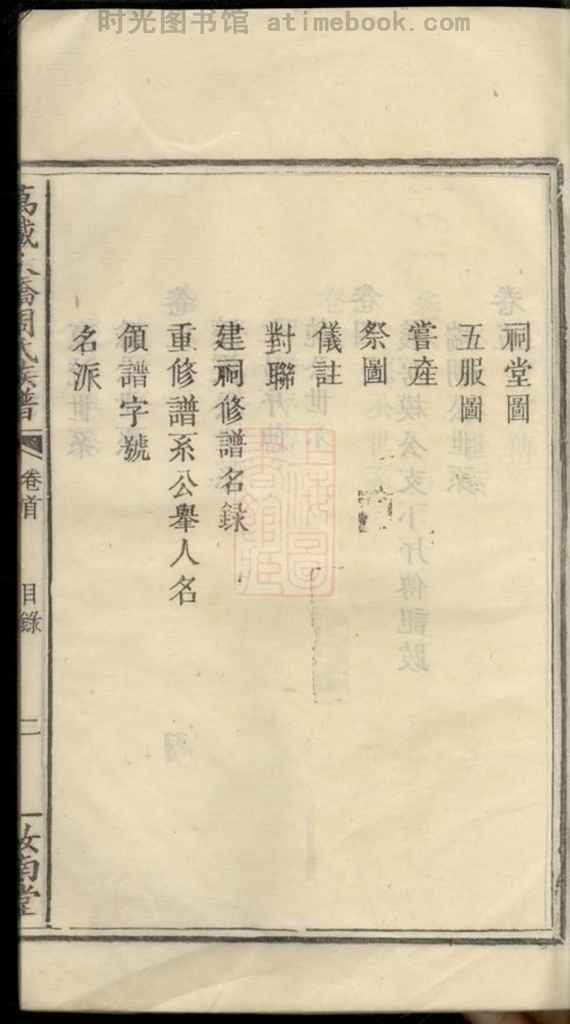 时光图书馆 atimebook.com
祠堂圖
五服圖
嘗產
祭圖
儀註
對聯
建祠修譜名録
重修譜系公舉人名
領譜字號
名派
周氏族譜
卷首
目錄
二
汝南堂